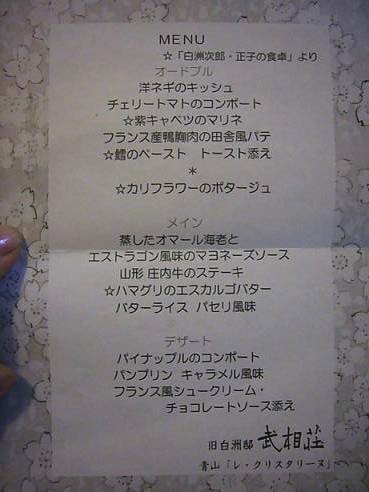 MENU
☆「白洲次郎・正子の食卓」より
オードブル
洋ネギのキッシュ
チェリートマトのコンポート
☆紫キャベツのマリネ
フランス産鴨胸肉の田舎風パテ
☆鱈のペースト　トースト添え
＊
☆カリフラワーのポタージュ
メイン
蒸したオマール海老と
エストラゴン風味のマヨネーズソース
山形 庄内牛のステーキ
☆ハマグリのエスカルゴバター
バターライス　パセリ風味
デザート
パイナップルのコンポート
パンプリン　キャラメル風味
フランス風シュークリーム・
チョコレートソース添え
旧白洲邸 武相荘
青山「レ・クリスタリーヌ」